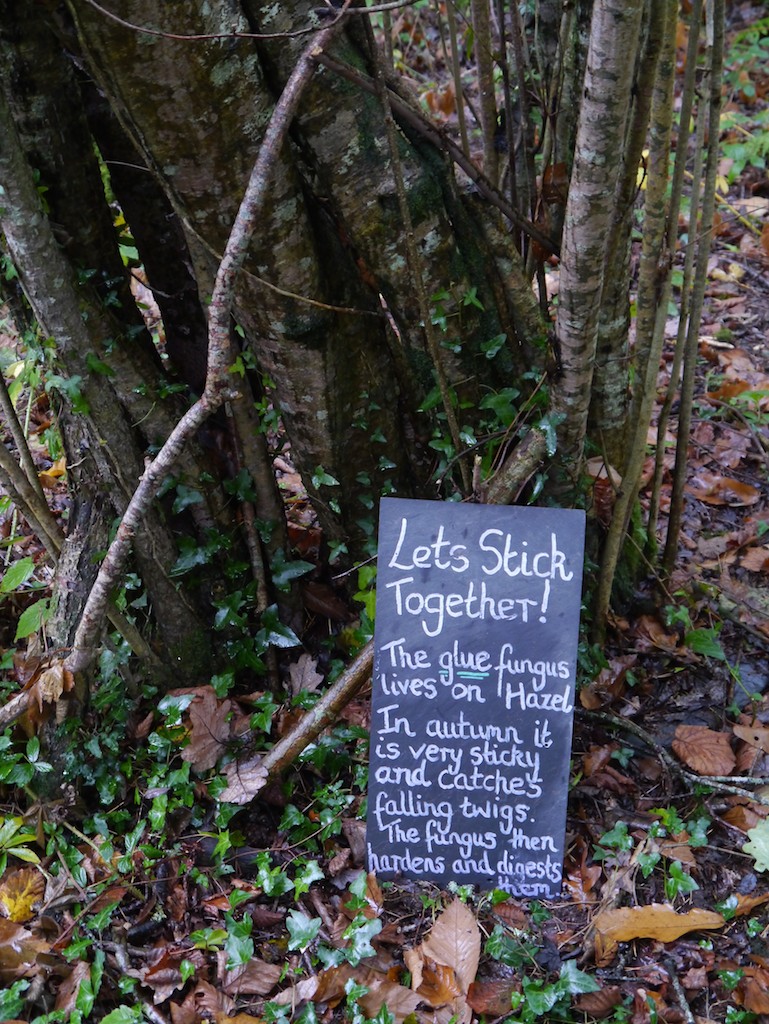 Lets Stick
Together!
The glue fungus
lives on Hazel
In autumn it
is very sticky
and catches
falling twigs.
The fungus then
hardens and digests
them